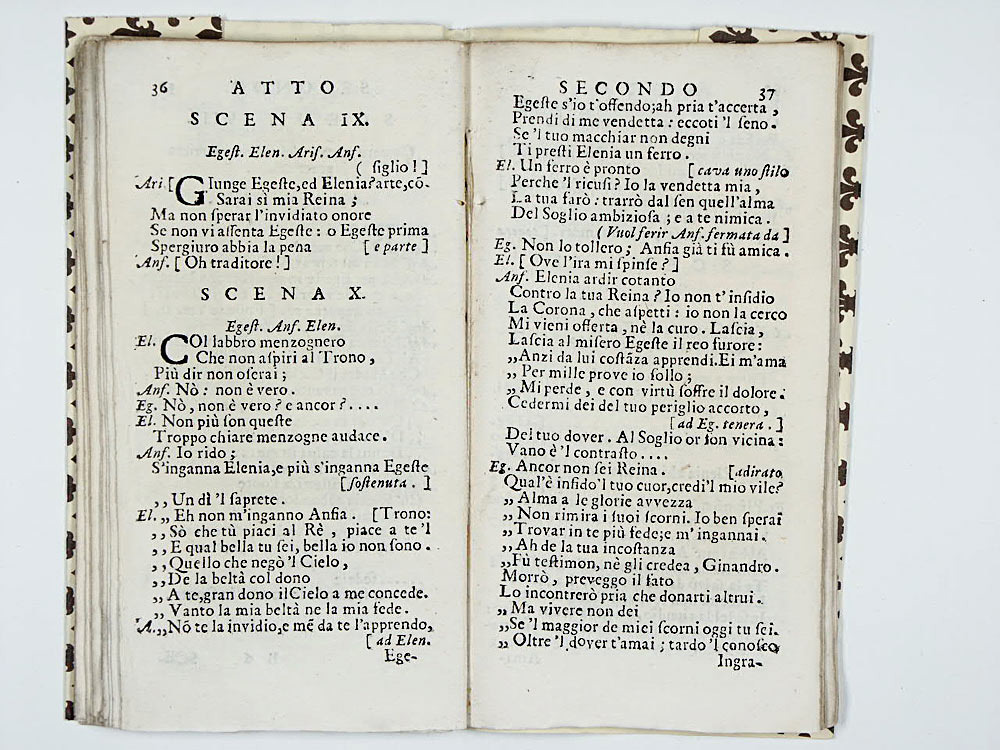 36 ATTO
SCENA IX.
Egeſt. Elen. Ariſ. Anſ.
( ſiglio! ]
Ari. [ Giunge Egeſte,ed Elenia?arte,cō-
Sarai sì mia Reina ;
Ma non ſperar l'invidiato onore
Se non vi aſſenta Egeſte : o Egeſte prima
Spergiuro abbia la pena [ e parte ]
Anſ. [ Oh traditore ! ]
SCENA X.
Egeſt. Anſ. Elen.
El. COl labbro menzognero
Che non aſpiri al Trono ,
Più dir non oſerai ;
Anſ. Nò : non è vero .
Eg. Nò , non è vero ? e ancor ? . . . .
El. Non più ſon queſte
Troppo chiare menzogne audace .
Anſ. Io rido ;
S'inganna Elenia,e più s'inganna Egeſte
[ſoſtenuta . ]
,, Un dì 'l ſaprete .
El. ,, Eh non m'inganno Anſia . [Trono:
,, Sò che tù piaci al Rè , piace a te 'l
,, E qual bella tu ſei, bella io non ſono .
,, Quello che negò 'l Cielo ,
,, De la beltà col dono
,, A te,gran dono il Cielo a me concede.
,, Vanto la mia beltà ne la mia fede .
A. ,, Nō te la invidio,e mē da te l'apprendo,
[ ad Elen.
Ege-
SECONDO 37
Egeſte s'io t'offendo;ah pria t'accerta ,
Prendi di me vendetta : eccoti 'l ſeno .
Se 'l tuo macchiar non degni
Ti preſti Elenia un ferro .
El. Un ferro è pronto [ cava uno ſtilo
Perche 'l ricuſi ? Io la vendetta mia ,
La tua farò : trarrò dal ſen quell'alma
Del Soglio ambizioſa ; e a te nimica .
( Vuol ferir Anſ. fermata da ]
Eg. Non lo tollero ; Anſia già ti fù amica .
El. [ Ove l'ira mi ſpinſe ? ]
Anſ. Elenia ardir cotanto
Contro la tua Reina ? Io non t'inſidio
La Corona , che aſpetti : io non la cerco
Mi vieni offerta , nè la curo . Laſcia ,
Laſcia al miſero Egeſte il reo furore :
,,Anzi da lui coſtāza apprendi.Ei m'ama
,, Per mille prove io ſollo ;
,, Mi perde , e con virtù ſoffre il dolore :
Cedermi dei del tuo periglio accorto ,
[ ad Eg. tenera . ]
Del tuo dover . Al Soglio or ſon vicina :
Vano è 'l contraſto . . . .
Eg. Ancor non ſei Reina . [adirato
Qual'è inſido'l tuo cuor,credi'l mio vile?
,, Alma a le glorie avvezza
,, Non rimira i ſuoi ſcorni. Io ben ſperai
,, Trovar in te più fede;e m' ingannai .
,, Ah de la tua incoſtanza
,,Fù teſtimon, nè gli credea , Ginandro .
Morrò , preveggo il fato
Lo incontrerò pria che donarti altrui .
,, Ma vivere non dei
,,Se 'l maggior de miei ſcorni oggi tu ſei .
,, Oltre 'l dover t'amai ; tardo 'l conoſco
Ingra-